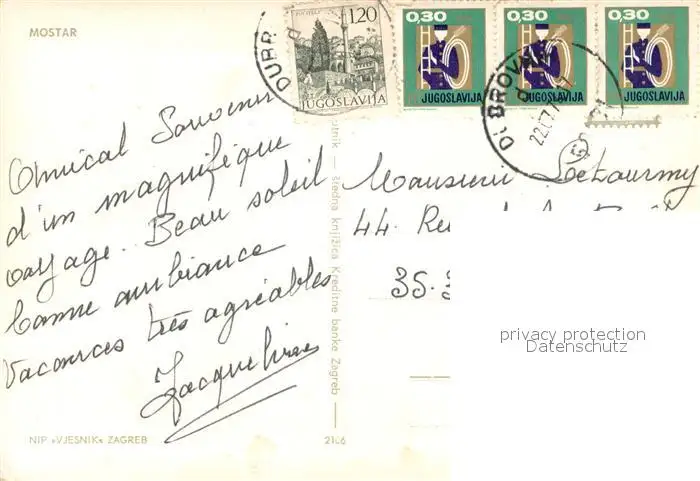 MOSTAR
1,20
JUGOSLAVIJA
0,30
JUGOSLAVIJA
0,30
JUGOSLAVIJA
0,30
JUGOSLAVIJA
DUBR
DUBROVNIK
22.7.7
Amical Souvenir
d'un magnifique
voyage. Beau soleil
bonne ambiance
Vacances très agréables
Jacqueline
štedna knjižica Kreditne banke Zagreb
Monsieur Letourmy
44. Rue
35.
privacy protection
Datenschutz
NIP »VJESNIK« ZAGREB
2106